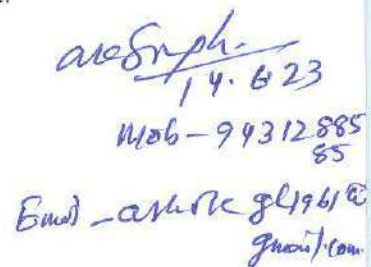 14.6.23
Mob - 94312885
85
Email - ashok gl1961@
gmail.com